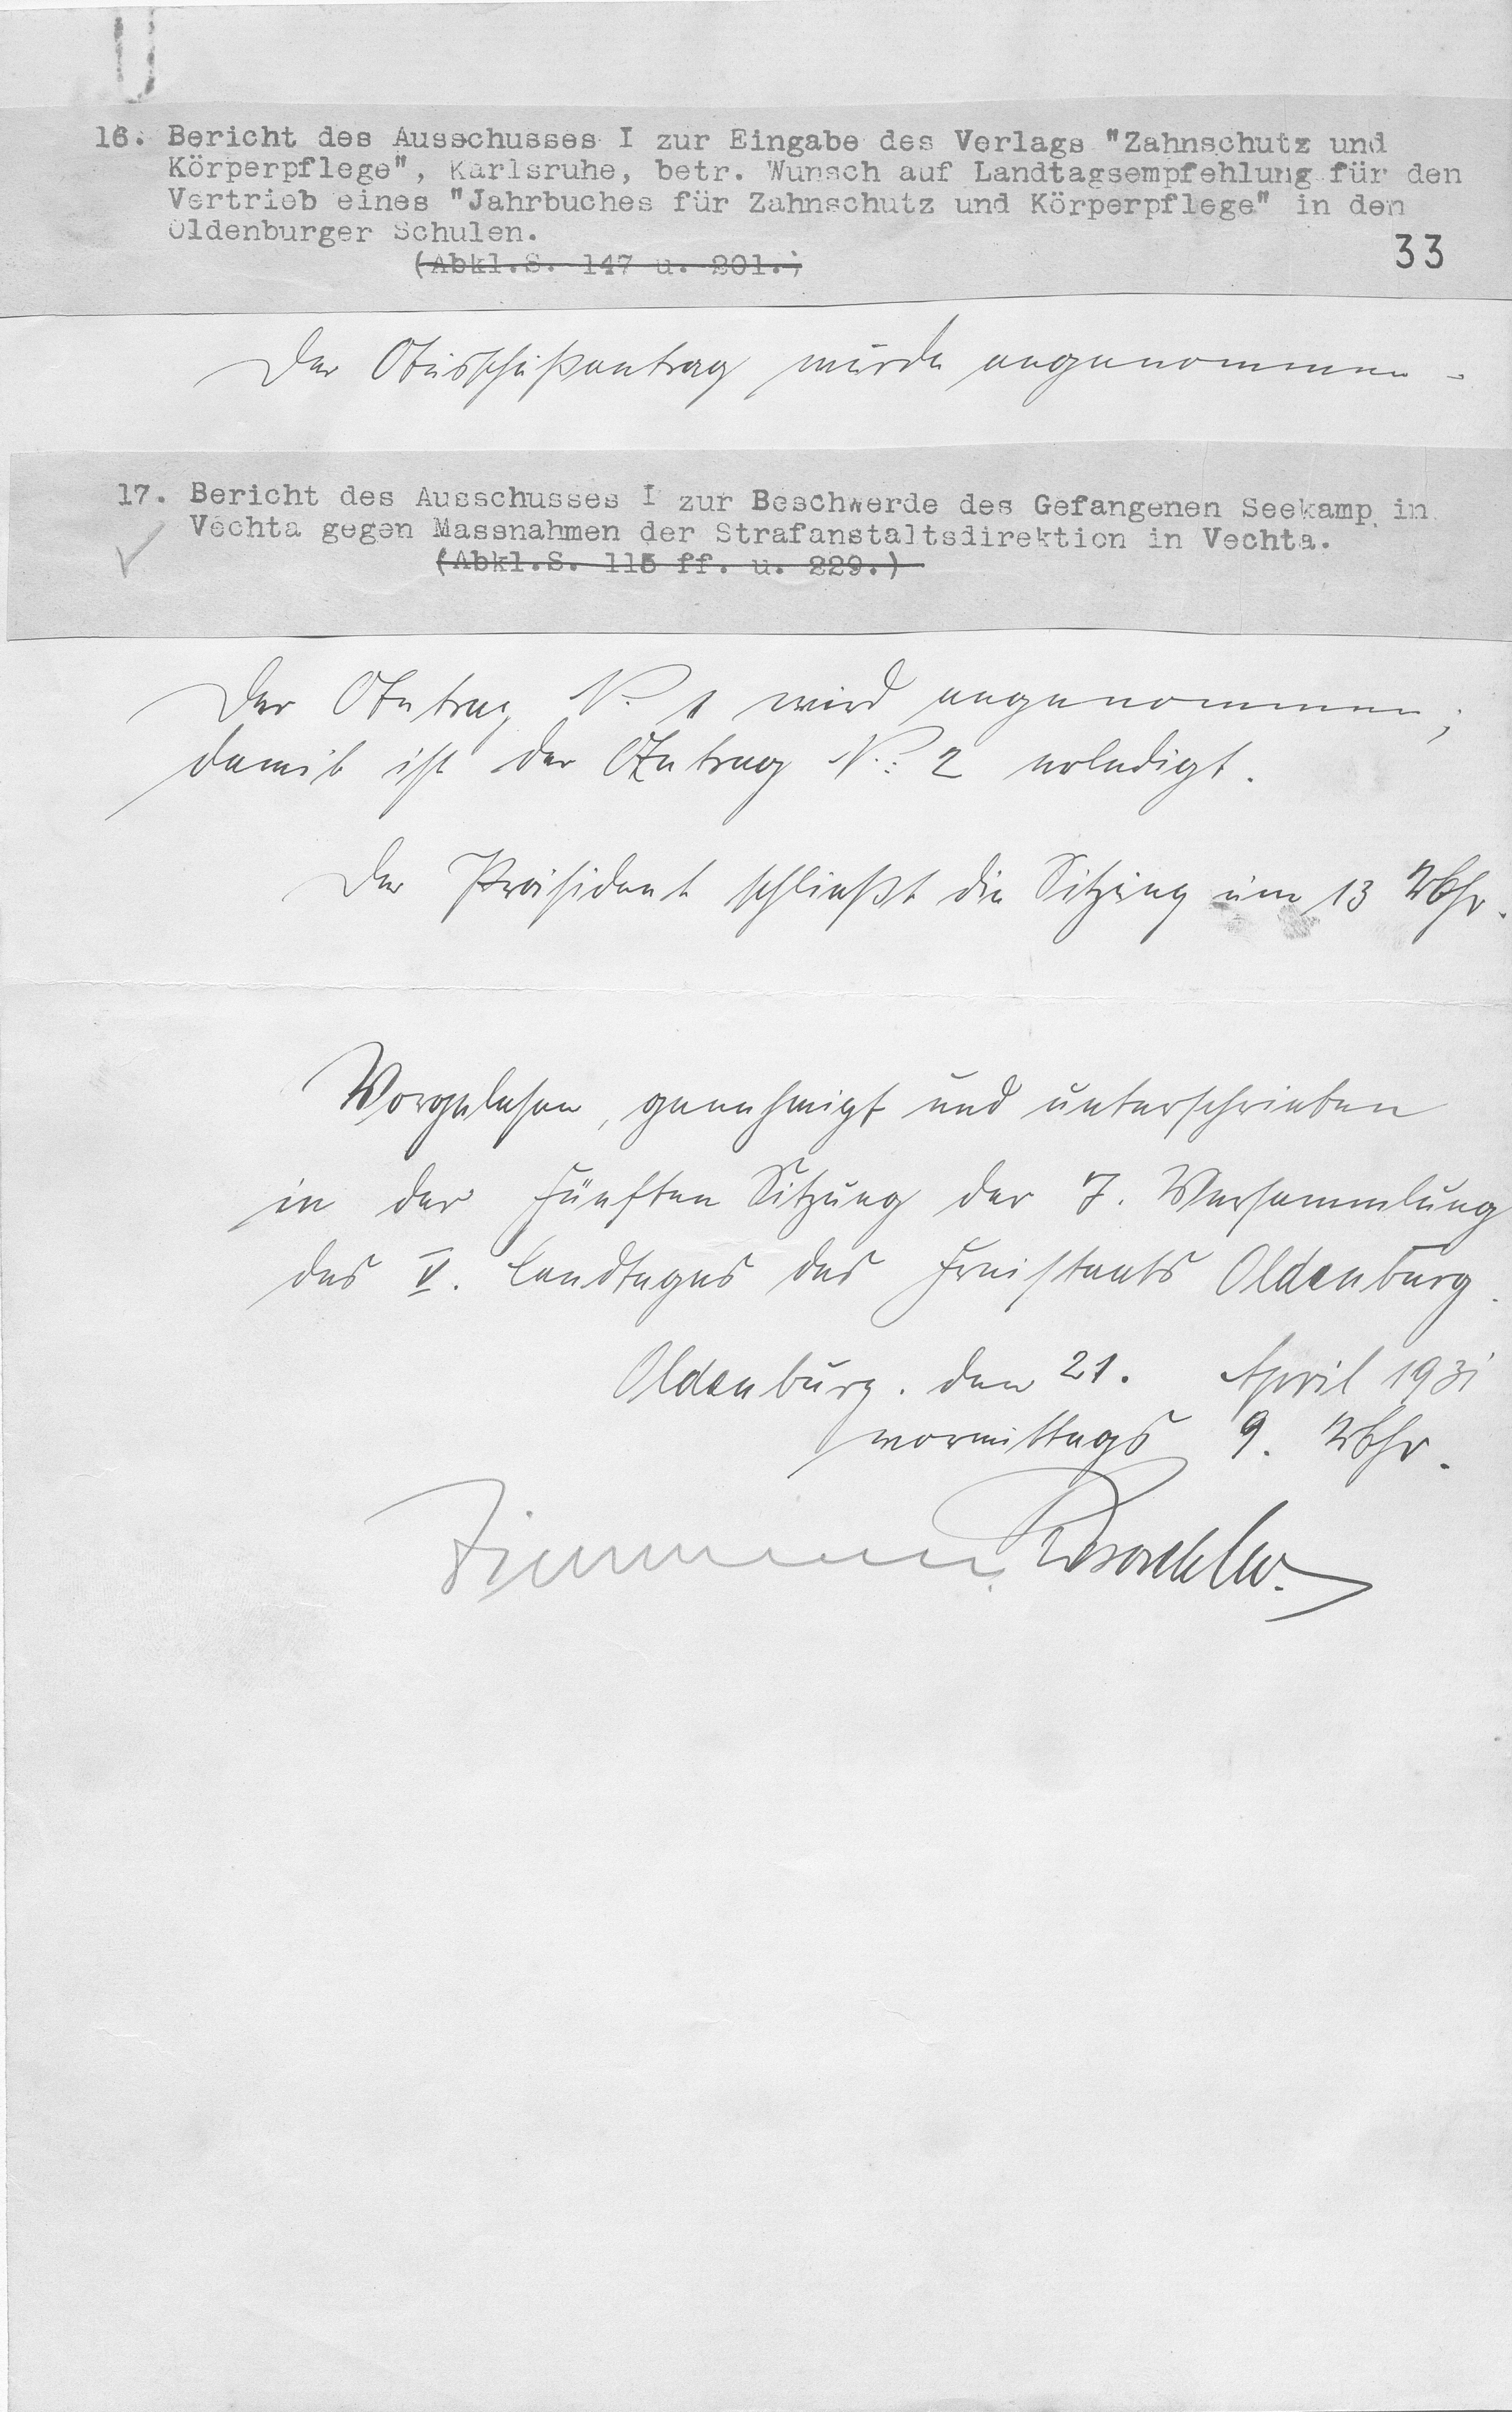 16. Bericht des Ausschusses I zur Eingabe des Verlags "Zahnschutz und
Körperpflege", Karlsruhe, betr. Wunsch auf Landtagsempfehlung für den
Vertrieb eines "Jahrbuches für Zahnschutz und Körperpflege" in den
Oldenburger Schulen.
33
(Abkl.S. 147 u. 201.)
Der Ausschußantrag wurde angenommen.
17. Bericht des Ausschusses I zur Beschwerde des Gefangenen Seekamp in
Vechta gegen Massnahmen der Strafanstaltsdirektion in Vechta.
(Abkl.S. 115 ff. u. 229.)
Der Antrag N. 1 wird angenommen;
damit ist der Antrag N: 2 erledigt.
Der Präsident schließt die Sitzung um 13 Uhr.
Vorgelesen, genehmigt und unterschrieben
in der fünften Sitzung der 7. Versammlung
des V. Landtages des Freistaats Oldenburg.
Oldenburg. den 21. April 1931
vormittags 9. Uhr.
Zimmermann.